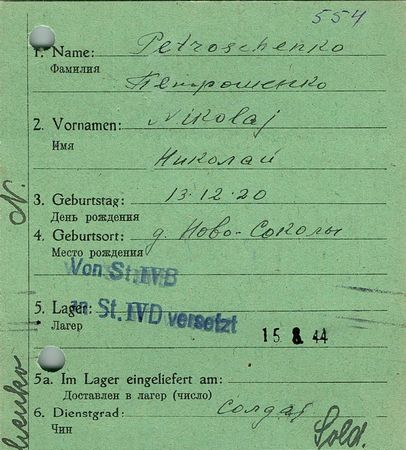 554
1. Name: Petroschenko
Фамилия Петрошенко
2. Vornamen: Nikolaj
Имя Николай
3. Geburtstag: 13·12·20
День рождения
4. Geburtsort: д. Ново-Соколы
Место рождения
Von St.IVB
5. Lager: an St.IVD versetzt
Лагер 15 8 44
5a. Im Lager eingeliefert am:
Доставлен в лагер (число)
6. Dienstgrad: солдат
Чин Sold.
N.